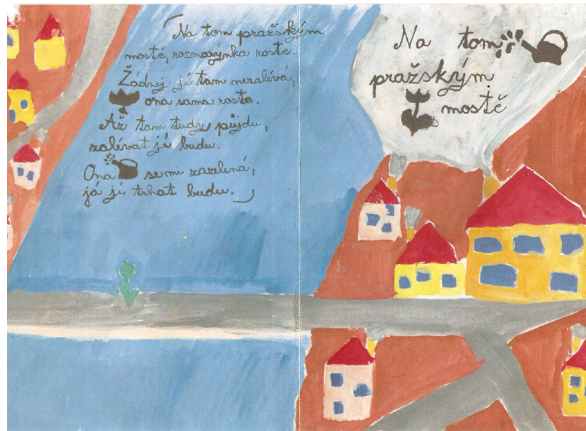 Na tom pražským
mostě, rozmarýnka roste.
Žádnej jí tam nezalévá,
ona sama roste.
Až tam tudy půjdu,
zalévat jí budu.
Ona se mi zazelená,
já jí trhat budu.
Na tom
pražským
mostě